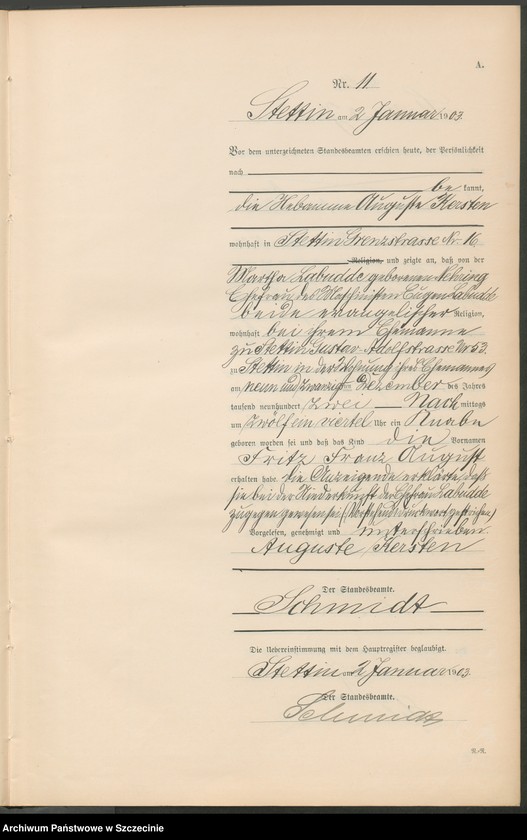 A.
Nr. 11
Stettin am 2 Januar 1903
Vor dem unterzeichneten Standesbeamten erschien heute, der Persönlichkeit
nach
be kannt,
die Hebamme Auguste Kersten
wohnhaft in Stettin Grenzstrasse Nr. 16
Religion, und zeigte an, daß von der
Martha Labudde geborenen Nehring
Ehefrau des Maschinisten Eugen Labudde
beide evangelischer Religion,
wohnhaft bei ihrem Ehemanne
zu Stettin Gustav-Adolfstrasse Nr 53
zu Stettin in der Wohnung ihres Ehemannes
am neun und zwanzigsten Dezember des Jahres
tausend neunhundert zwei Nach mittags
um zwölf ein viertel Uhr ein Knabe
geboren worden sei und daß das Kind die Vornamen
Fritz Franz August
erhalten habe. Die Anzeigende erklärte, daß
sie bei der Niederkunft der Ehefrau Labudde
zugegen gewesen sei (Vorstehend Druckwort gestrichen)
Vorgelesen, genehmigt und unterschrieben
Auguste Kersten
Der Standesbeamte.
Schmidt
Die Uebereinstimmung mit dem Hauptregister beglaubigt.
Stettin am 2 Januar 1903
Der Standesbeamte.
Schmidt
A.-N.
Archiwum Państwowe w Szczecinie